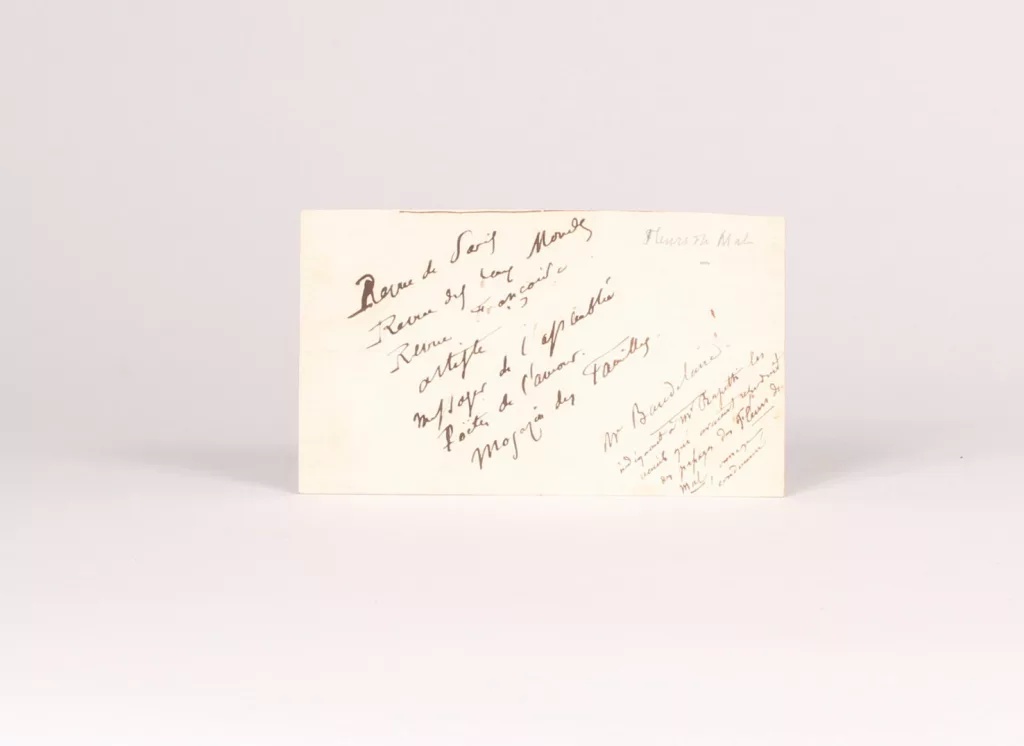 Revue de Paris
Revue des deux Mondes
Revue Française
artiste
messager de l'assemblée
Poëtes de l'amour.
Magazin des Familles.
Fleurs du Mal
Mr Baudelaire!
indiquant à Mr Rapetti les
recueils qui avaient reproduit
des passages des Fleurs du
Mal, ouvrage
condamné